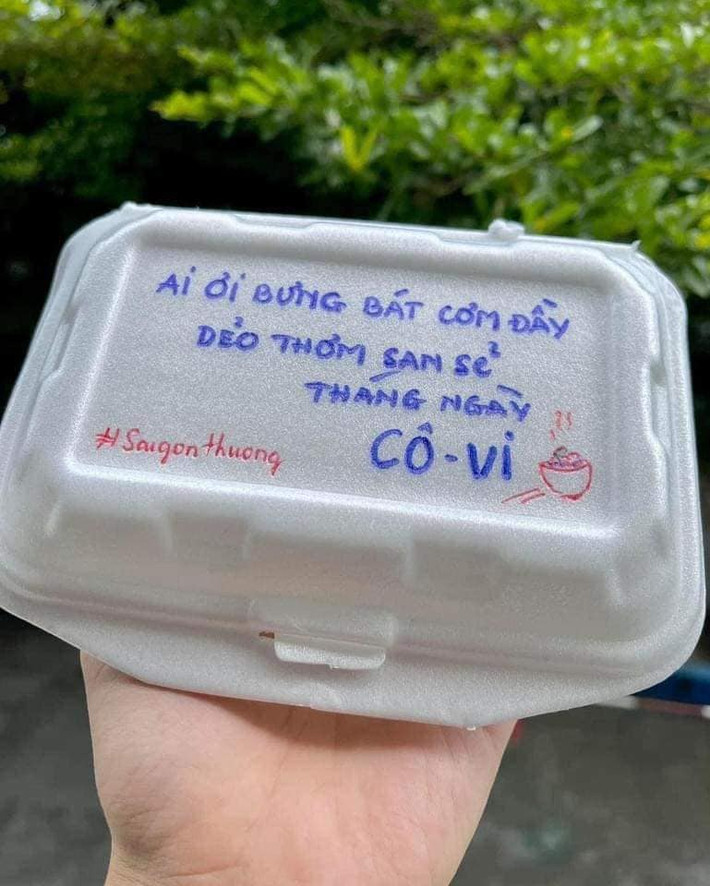 Ai ơi BƯNG BÁT CƠM ĐẦY
DẺO THƠM SAN SẺ
THÁNG NGÀY
CÔ-Vi
#Saigonthuong